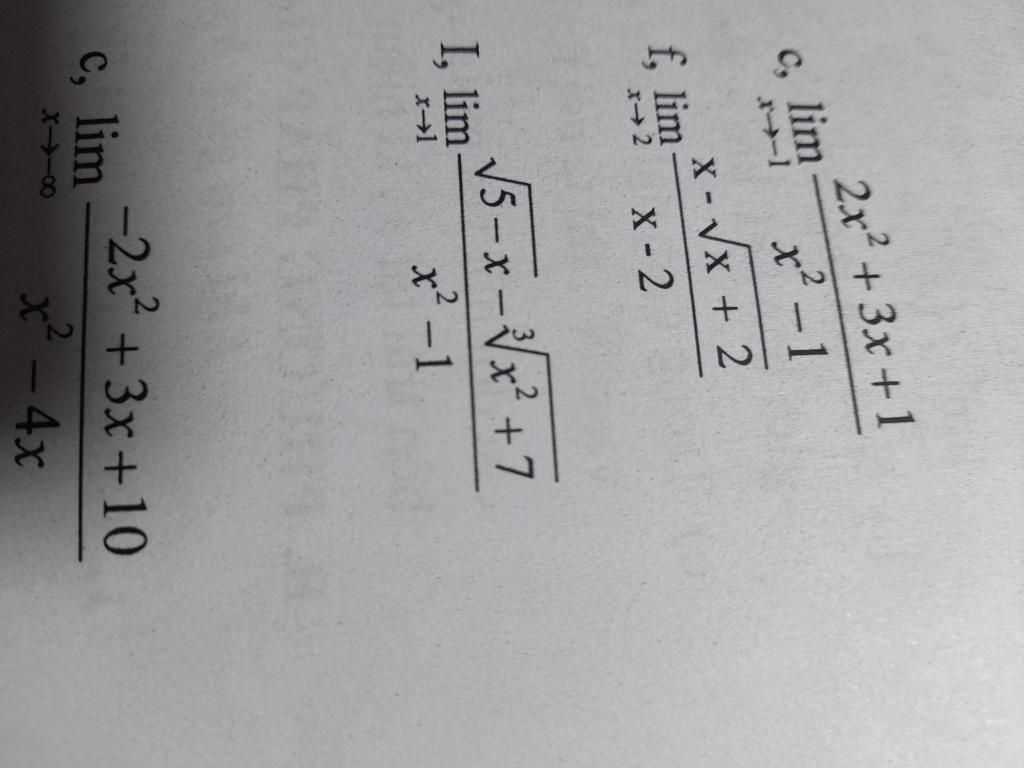 c, lim_{x→-1} \frac{2x^2 + 3x + 1}{x^2 - 1}
f, lim_{x→2} \frac{x - \sqrt{x + 2}}{x - 2}
I, lim_{x→1} \frac{\sqrt{5 - x} - \sqrt[3]{x^2 + 7}}{x^2 - 1}
c, lim_{x→-∞} \frac{-2x^2 + 3x + 10}{x^2 - 4x}